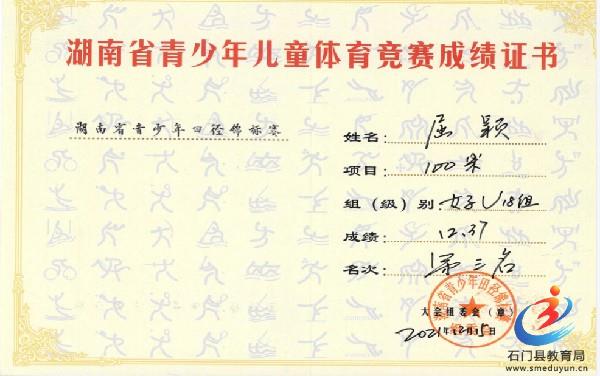 湖南省青少年儿童体育竞赛成绩证书
湖南省青少年田径锦标赛
姓名: 屈颖
项目: 100米
组（级）别: 女子U18组
成绩: 12.37
名次: 第三名
大会组委会（章）
2021年12月15日
石门县教育局
www.smeduyun.cn